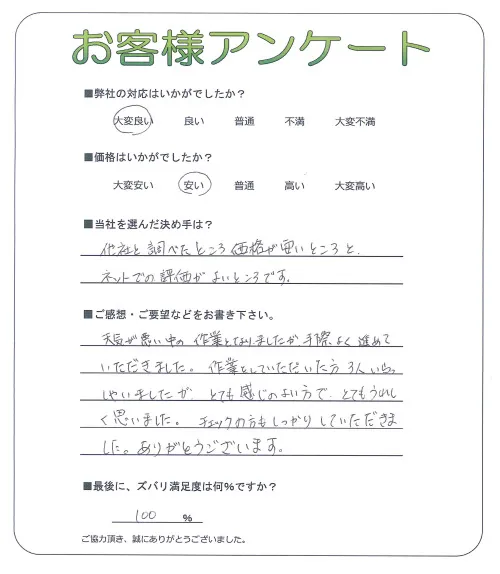 お客様アンケート
■弊社の対応はいかがでしたか？
大変良い 良い 普通 不満 大変不満
■価格はいかがでしたか？
大変安い 安い 普通 高い 大変高い
■当社を選んだ決め手は？
他社と調べたところ価格が安いところと、
ネットでの評価がよいところです。
■ご感想・ご要望などをお書き下さい。
天気が悪い中の作業となりましたが、手際よく進めて
いただきました。作業をしていただいた方3人いらっ
しゃいましたが、とても感じのよい方で、とてもうれし
く思いました。チェックの方もしっかりしていただきま
した。ありがとうございます。
■最後に、ズバリ満足度は何％ですか？
100 ％
ご協力頂き、誠にありがとうございました。